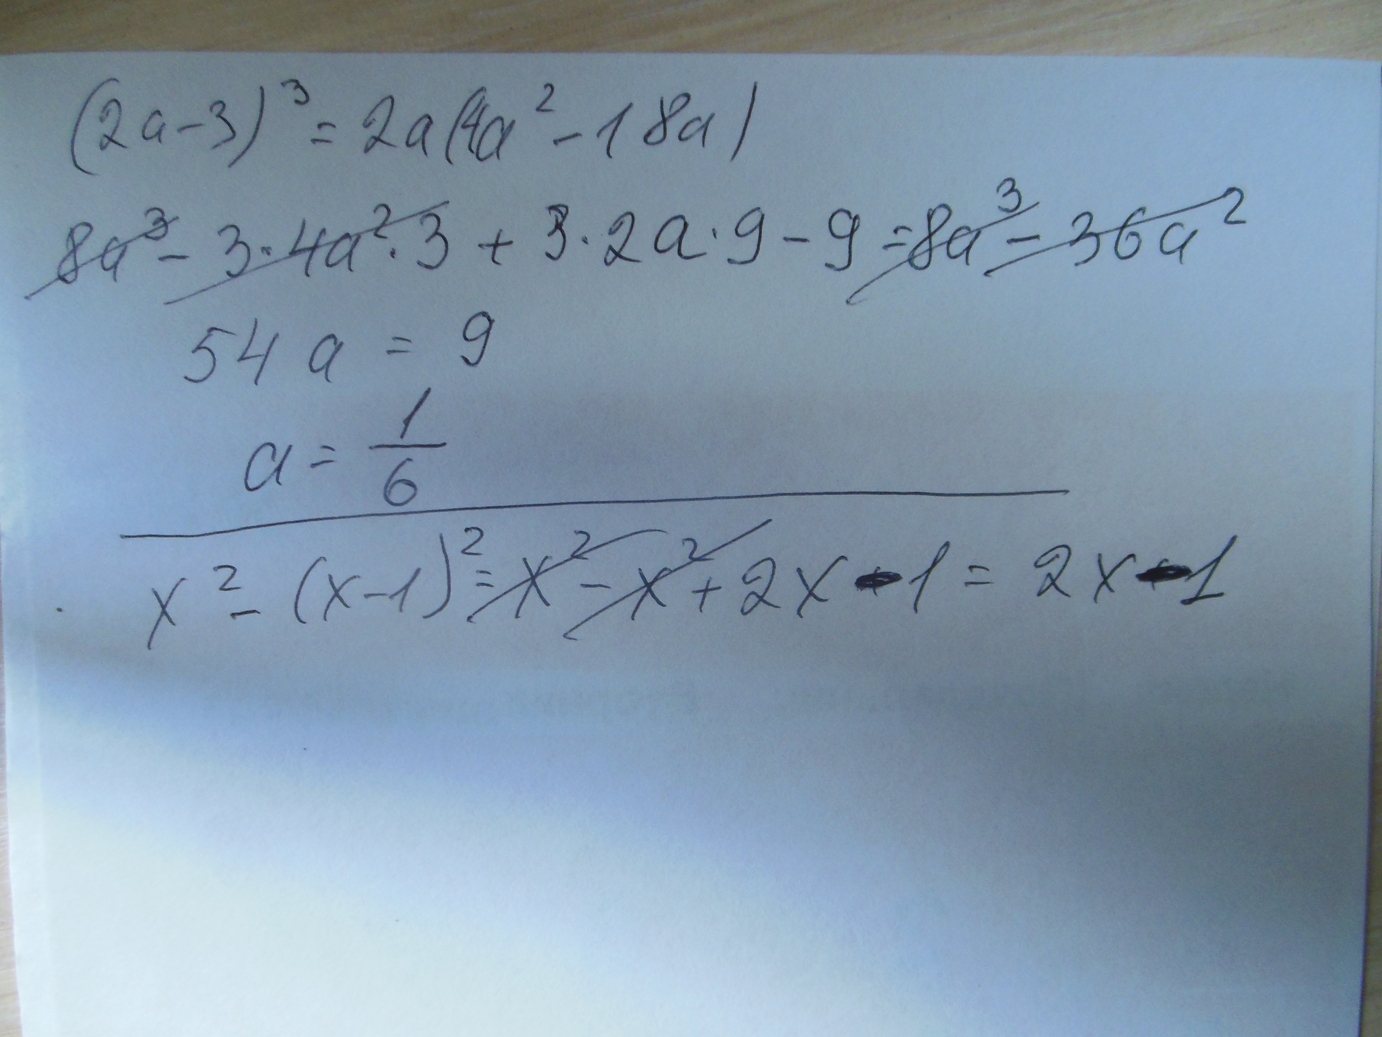 (2a-3)³=2a(4a²-18a)
8a³-3·4a²·3+3·2a·9-9=8a³-36a²
54a=9
a=1/6
x²-(x-1)²=x²-x²+2x-1=2x-1